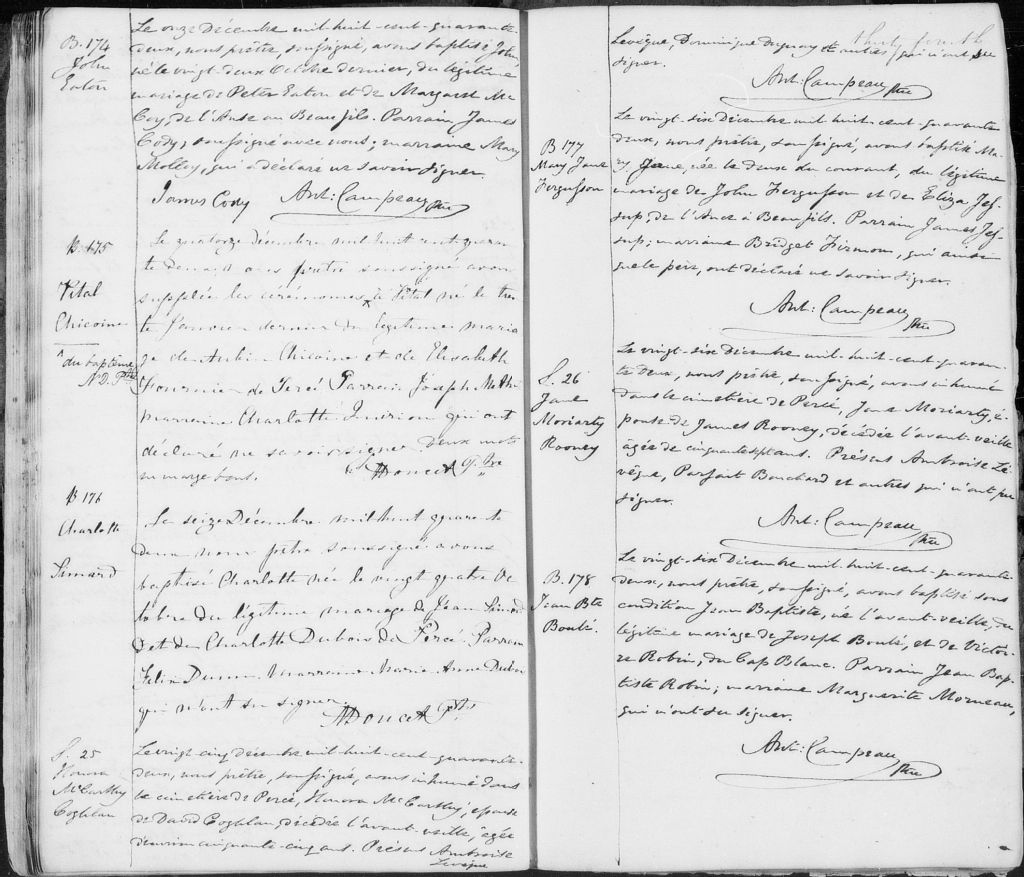 B. 174
John
Eaton
Le onze Décembre mil huit-cent-quarante-
deux, nous prêtre, soussigné, avons baptisé John,
né le vingt-deux Octobre dernier, du légitime
mariage de Peter Eaton et de Margaret Mc
Coy, de l'Anse au Beaufils. Parrain James
Cody, soussigné avec nous; marraine Mary
Molloy, qui a déclaré ne savoir signer.
James Cody Ant: Campeau Ptre
B. 175
Vital
Chicoine
du baptême
N.D. Ptre
Le quatorze Décembre mil huit cent quaran
te deux nous prêtre soussigné avons
suppléé les cérémonies à Vital né le tren
te Janvier dernier du légitime maria
ge de Aubin Chicoine et de Elisabeth
Fournier de Percé Parrain Joseph
marraine Charlotte qui ont
déclaré ne savoir signer Deux mots
en marge bons. Doucet Ptre
B 176
Charlotte
Simard
Le seize Décembre mil huit quarante
deux nous prêtre soussigné avons
baptisé Charlotte née le vingt quatre Oc
tobre du légitime mariage de Jean Simard
et de Charlotte Dubois de Percé. Parrain
Felix Marraine Marie Anne Dubois
qui n'ont su signer.
Doucet Ptre
S. 25
Honora
McCarthy
Coghlan
Le vingt-cinq Décembre mil-huit-cent-quarante-
deux, nous prêtre, soussigné, avons inhumé dans
le cimetière de Percé, Honora McCarthy, épouse
de David Coghlan, décédée l'avant-veille, âgée
d'environ cinquante-cinq ans. Présens Ambroise
Levêque
Levêque, Dominique Duguay et autres, qui n'ont su
signer.
Ant: Campeau Ptre
B 177
Mary Jane
Fergusson
Le vingt-six Décembre mil-huit-cent-quarante-
deux, nous prêtre, soussigné, avons baptisé Ma-
ry Jane, née le douze du courant, du légitime
mariage de John Fergusson et de Eliza Jes-
sup, de l'Anse à Beaufils. Parrain James Jes-
sup; marraine Bridget, qui ainsi
que le père, ont déclaré ne savoir signer.
Ant: Campeau Ptre
S. 26
Jane
Moriarty
Rooney
Le vingt-six Décembre mil-huit-cent-quaran-
te deux, nous prêtre, soussigné, avons inhumé
dans le cimetière de Percé, Jane Moriarty, é-
pouse de James Rooney, décédée l'avant-veille
âgée de cinquante sept ans. Présens Ambroise Le-
vêque, Parfait Bouchard et autres qui n'ont pu
signer.
Ant: Campeau Ptre
B. 178
Jean Bte
Boulé.
Le vingt-six Décembre mil-huit-cent-quarante-
deux, nous prêtre, soussigné, avons baptisé sous
condition Jean Baptiste, né l'avant-veille, du
légitime mariage de Joseph Boulé, et de Victoi-
re Robin, du Cap Blanc. Parrain Jean Bap-
tiste Robin; marraine Marguerite Morneau,
qui n'ont su signer.
Ant: Campeau Ptre